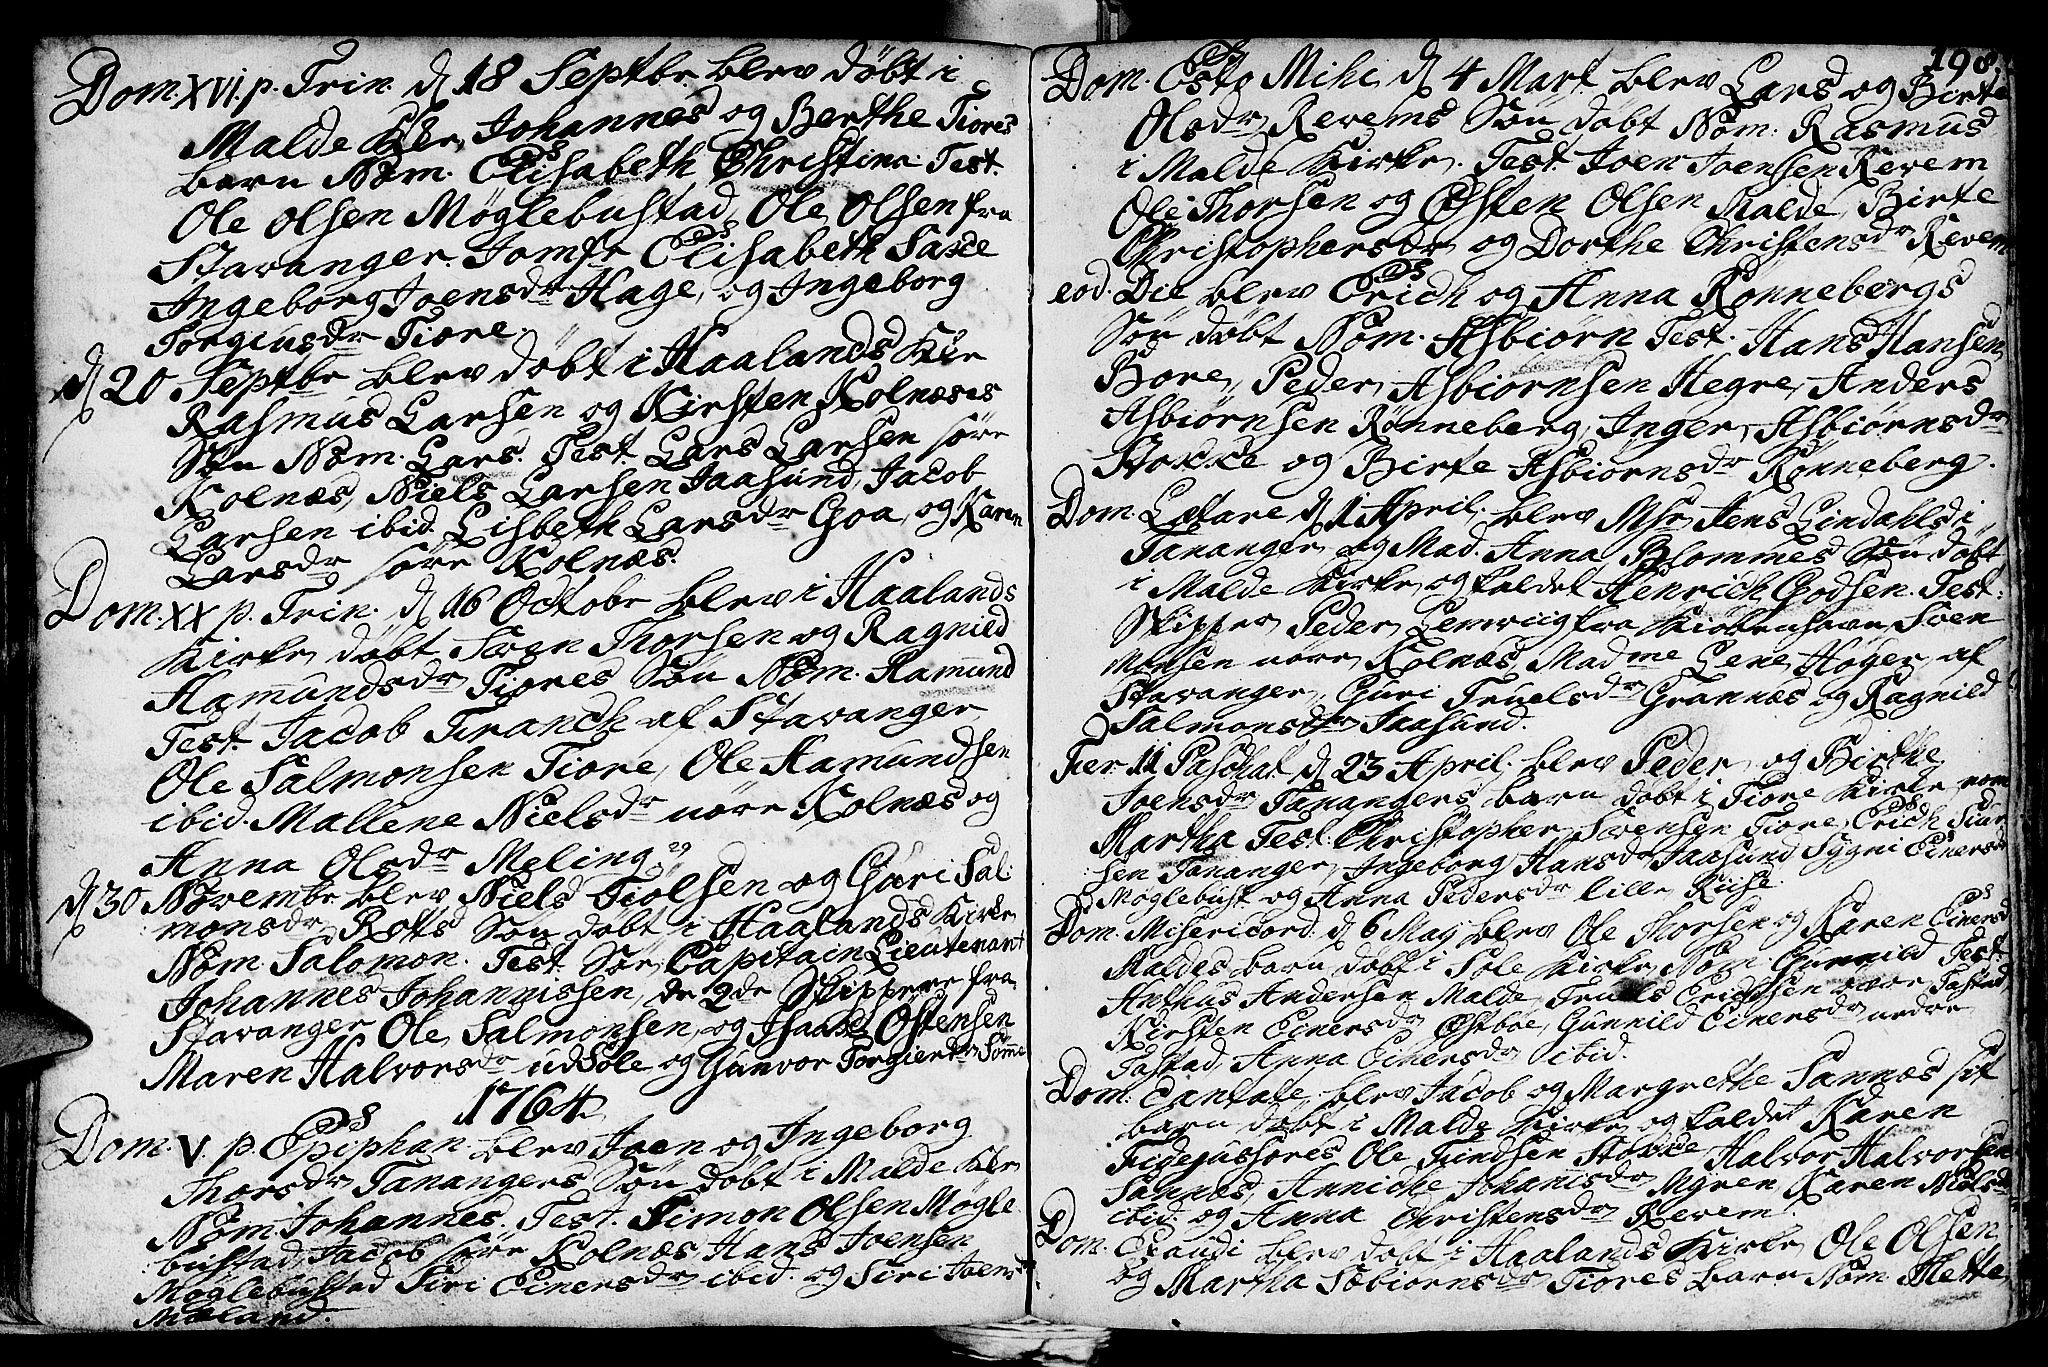 Dom. XVI. p. Trin. d 18 Septbr blev döbt i
Malde Kir. Johannes og Berthe Tiores
barn Nom. Elisabeth Christine. Test.
Ole Olsen Möglebustad, Ole Olsen fra
Stavanger. Jomfr Elisabeth Saxe
Ingeborg Joensdr Hage, og Ingeborg
Torgiusdr Tiore.
d 20 Septbr blev döbt i Haalands Kir
Rasmus Larsen og Kirsten Kolnæses
Sön Nom. Lars. Test. Lars Larsen söre
Kolnæs, Niels Larsen Jaasund, Jacob
Larsen ibid. Lisbeth Larsdr Goa, og Karen
Larsdr söre Kolnæs.
Dom. XX p. Trin. d 16 Octobr blev i Haalands
Kirke döbt Sven Thorsen og Ragnild
Hamundsdr Tiores Sön Nom. Hamund
Test. Jacob Franck af Stavanger
Ole Salmonsen Tiore, Ole Hamundsen
ibid. Mallene Nielsdr nöre Kolnæs og
Anna Olsdr Meling
d 30 Novembr blev Niels Tiölsen og Guri Sal:
monsdr Rotts Sön döbt i Haalands Kirke
Nom. Salomon. Test. Sör Capitain Lieutenant
Johannes Johannissen, de 2de Skippere fra
Stavanger Ole Salmonsen, og Isaach Östensen
Maren Halvorsdr udSole og Gunvor Torgiersdr Sömme
1764
Dom. V. p. Epiphan. blev Joen og Ingeborg
Thorsdr Tanangers Sön döbt i Malde Kir
Nom. Johannes. Test. Simon Olsen Mögle
bustad, Jacob söre Kolnæs, Hans Joensen
Möglebustad Siri Einersdr ibid. og Siri Joensdr
Mæland.
198
Dom. Esto Mihi d 4 Mart blev Lars og Birte
Olsdr Revems Sön döbt Nom. Rasmus
i Malde Kirke. Test. Joen Joensen Revem
Ole Thorsen og Østen Olsen Malde, Birte
Christophersdr og Dorthe Christensdr Revem
eod. Die blev Erich og Anna Rönnebergs
Sön döbt Nom. Asbiörn Test. Hans Hansen
Bore, Peder Asbiörnsen Hegre, Anders
Asbiörnsen Rönneberg, Inger Asbiörnsdr
Stokke og Birte Asbiörnsdr Rönneberg.
Dom. Lætare d 1 April. blev Msr Jens Lindahls i
Tananger og Mad. Anna Blommes Sön döbt
i Malde Kirke og kaldet Henrich Godsen. Test:
Skipper Peder Lemvig fra Kiöbenhavn, Sven
Monsen nöre Kolnæs, Madme Lene Höyer af
Stavanger, Guri Truelsdr Grannæs og Ragnild
Salmonsdr Jaasund.
Fer: II Paschat d 23 April. blev Peder og Birthe
Joensdr Tanangers barn döbt i Tiore Kirke nom
Martha Test. Christopher Svensen Tiore, Erich Siur
sen Tananger, Ingeborg Hansdr Jaasund Sygni Einersdr
Möglebust og Anna Pedersdr lille Riise.
Dom. Misericord. d 6 May blev Ole Thorsen og Karen Einersdr
Maldes barn döbt i Sole Kirke Nom. Gunnild Test.
Anthus Andersen Malde, Truels Erichsen nære Tastad,
Kirsten Einersdr Østboe, Gunnild Einersdr nedre
Tastad, Anna Einersdr ibid.
Dom. Cantate blev Jacob og Margrethe Sannæs sit
barn döbt i Malde Kirke og kaldet Karen
Fidejussores Ole Tundsen Stokke Halvor Halvorsen
Sannæs, Anniche Johanisdr Myren, Karen Nielsdr
ibid. og Anna Christensdr Revem.
Dom. Exaudi blev döbt i Haalands Kirke Ole Olsen
og Martha Sæbiörnsdr Tiores barn Nom. Mette